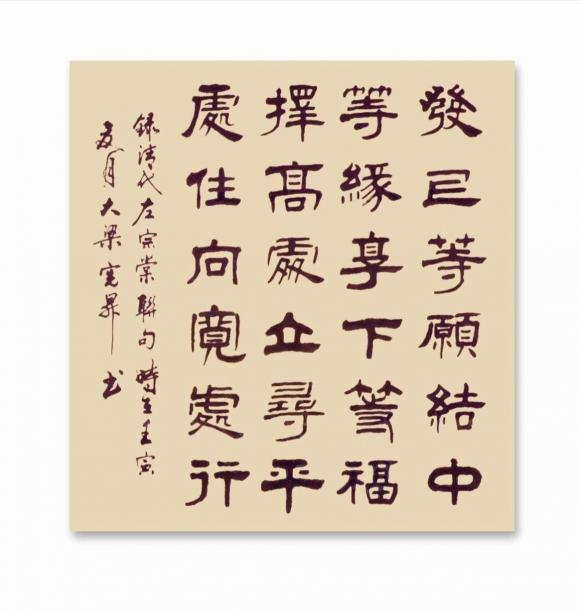 發上等願結中
等緣享下等福
擇髙處立尋平
處住向寬處行
録清代左宗棠聯句時在壬寅
夏月大梁昇书